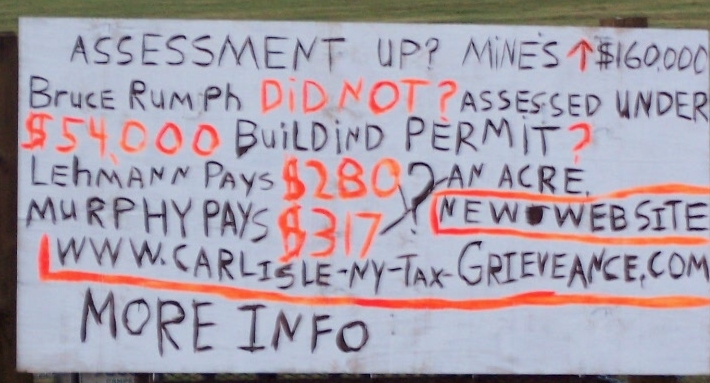 ASSESSMENT UP? MINE'S ↑ $160,000
BRUCE RUMPH DID NOT? ASSESSED UNDER
$54,000 BUILDIND PERMIT?
LEHMANN PAYS $280 ? AN ACRE.
MURPHY PAYS $317 NEW WEBSITE
WWW.CARLISLE-NY-TAX-GRIEVEANCE.COM
MORE INFO